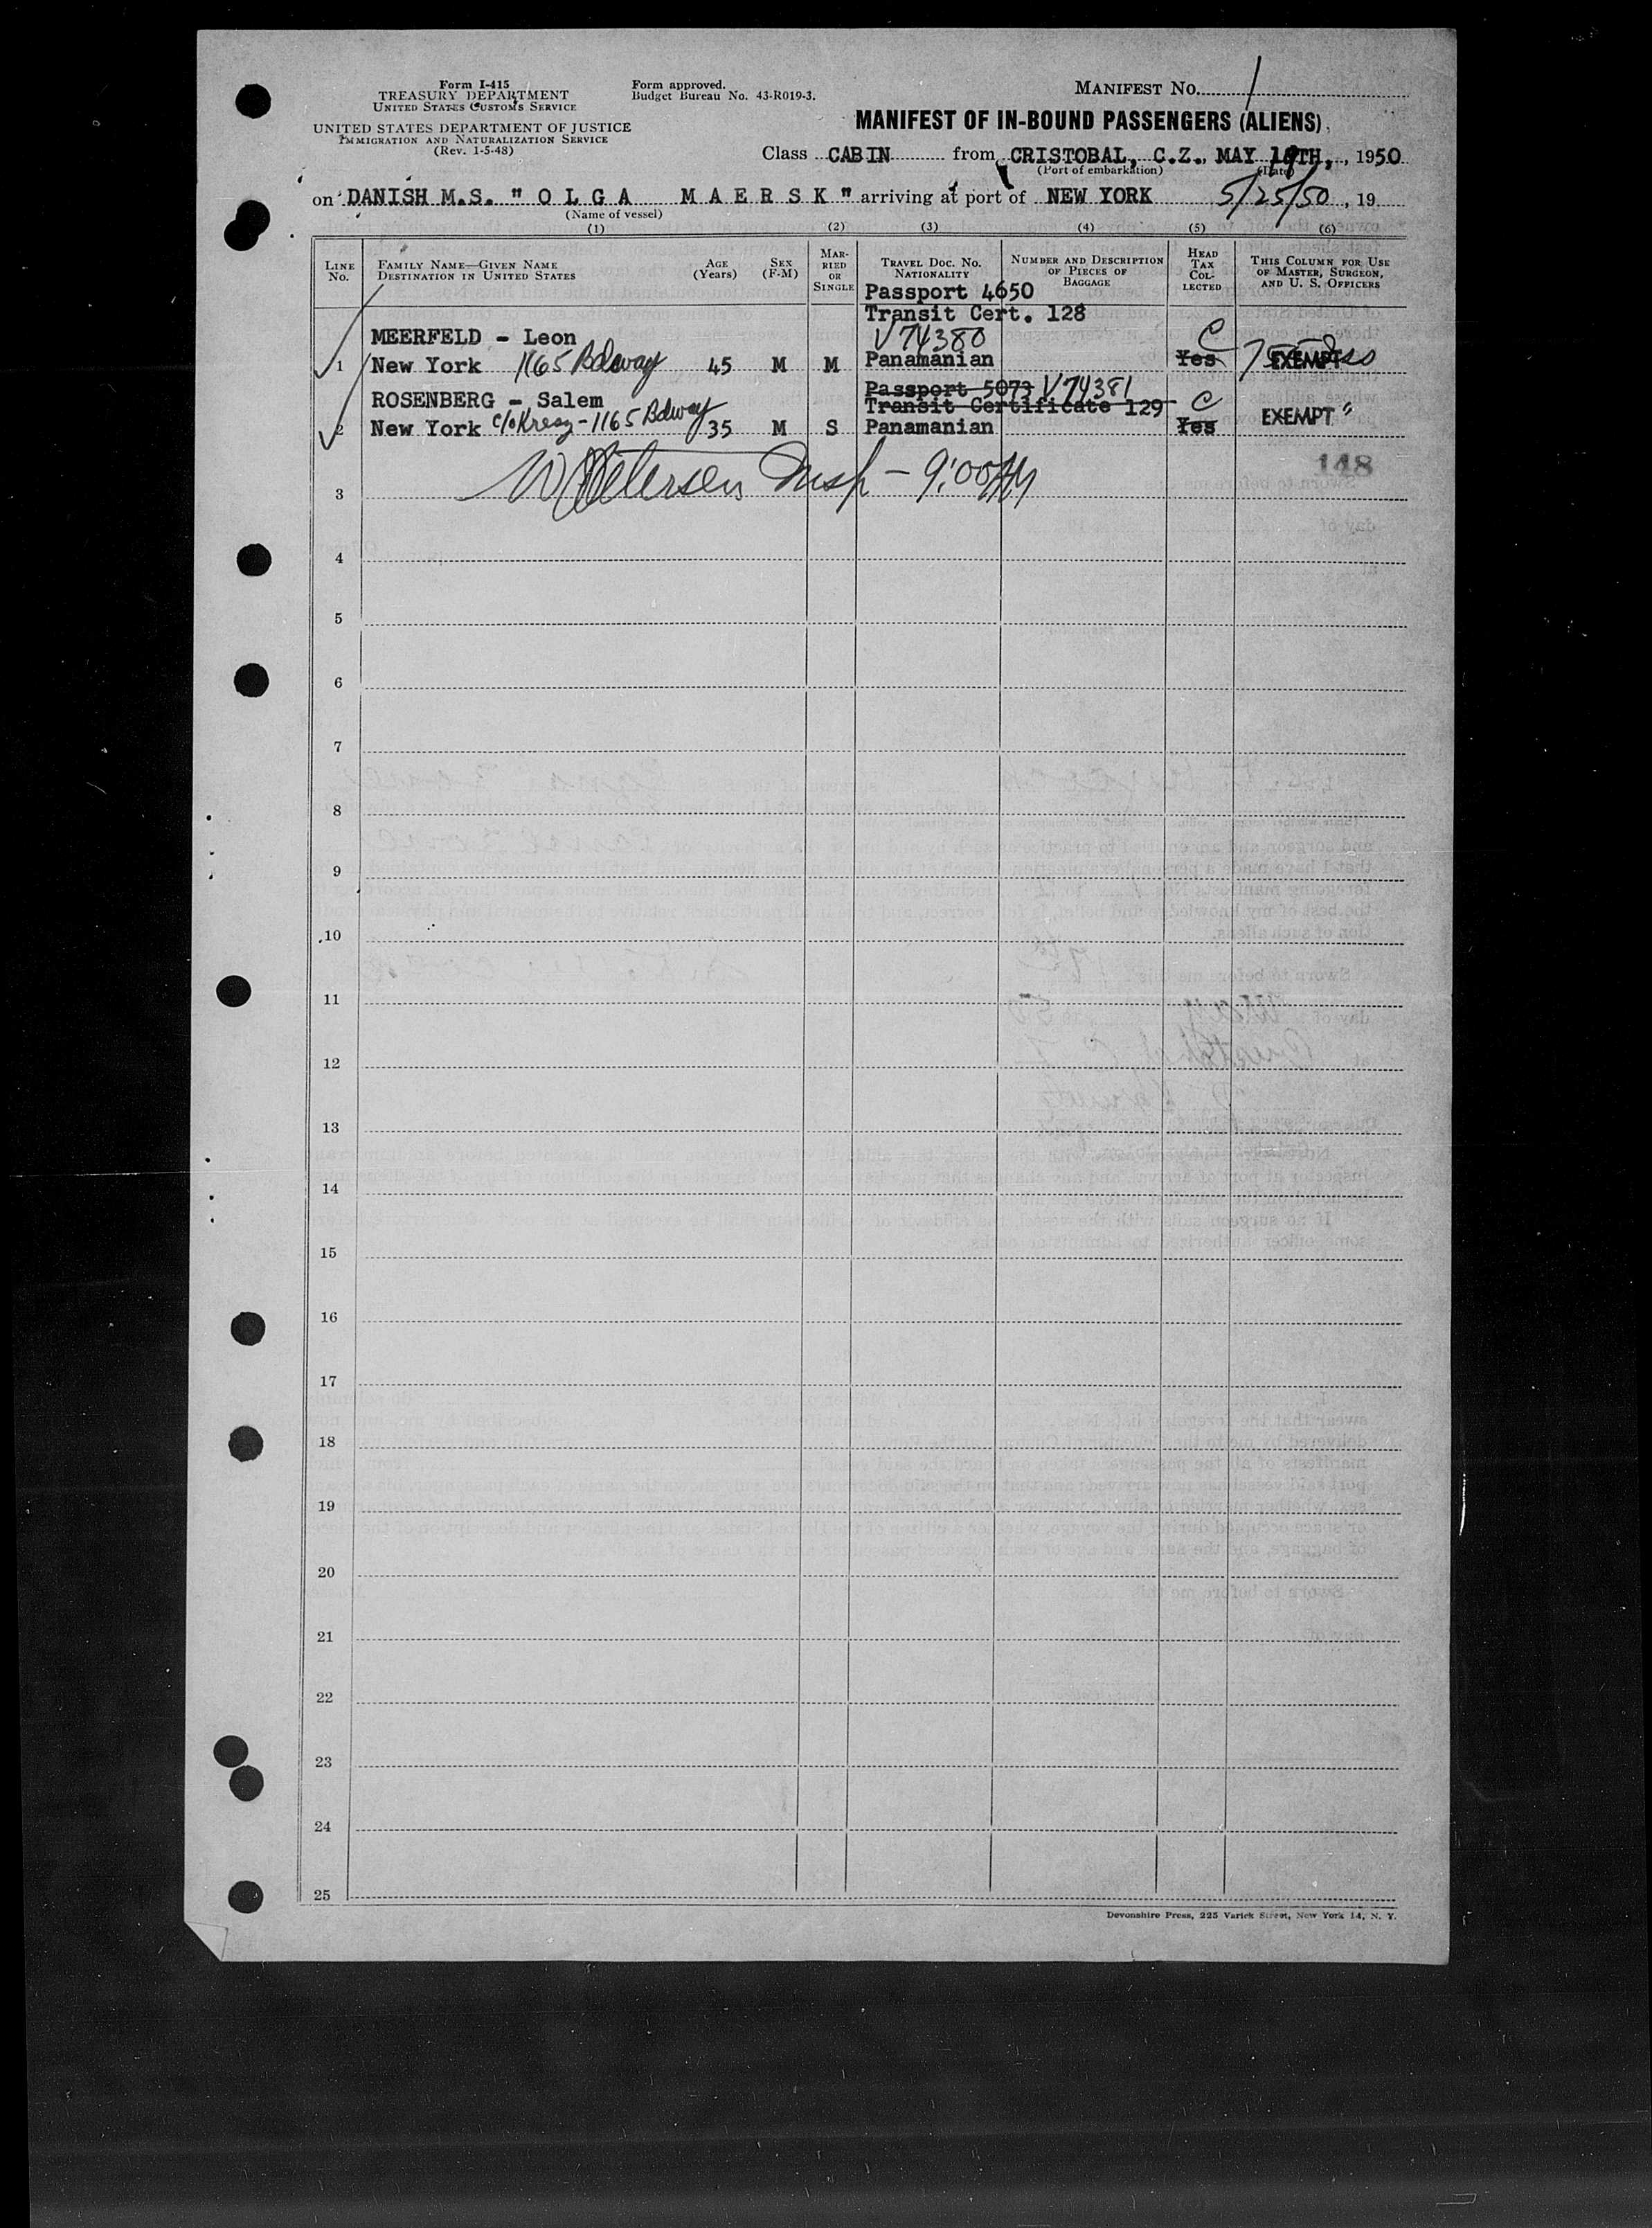 Form I-415
TREASURY DEPARTMENT
UNITED STATES CUSTOMS SERVICE
UNITED STATES DEPARTMENT OF JUSTICE
IMMIGRATION AND NATURALIZATION SERVICE
(Rev. 1-5-48)
Form approved.
Budget Bureau No. 43-R019-3.
MANIFEST No. 1
MANIFEST OF IN-BOUND PASSENGERS (ALIENS)
Class CABIN from CRISTOBAL, C.Z., MAY 19TH, , 1950
(Port of embarkation) (Date)
on DANISH M.S. " O L G A M A E R S K " arriving at port of NEW YORK 5/25/50, 19
(Name of vessel)
(1) (2) (3) (4) (5) (6)
LINE No. FAMILY NAME—GIVEN NAME DESTINATION IN UNITED STATES AGE (Years) SEX (F-M) MARRIED OR SINGLE TRAVEL DOC. No. NATIONALITY NUMBER AND DESCRIPTION OF PIECES OF BAGGAGE HEAD TAX COLLECTED THIS COLUMN FOR USE OF MASTER, SURGEON, AND U. S. OFFICERS
Passport 4650
Transit Cert. 128
MEERFELD - Leon V74380 C
1 New York 1165 Bdway 45 M M Panamanian Yes EXEMPT
Passport 5073 V74381
ROSENBERG - Salem Transit Certificate 129 C
2 New York c/o Kresz - 1165 Bdway 35 M S Panamanian Yes EXEMPT "
148
3 Petersen Insp - 9:00 AM
4
5
6
7
8
9
10
11
12
13
14
15
16
17
18
19
20
21
22
23
24
25
Devonshire Press, 225 Varick Street, New York 14, N. Y.